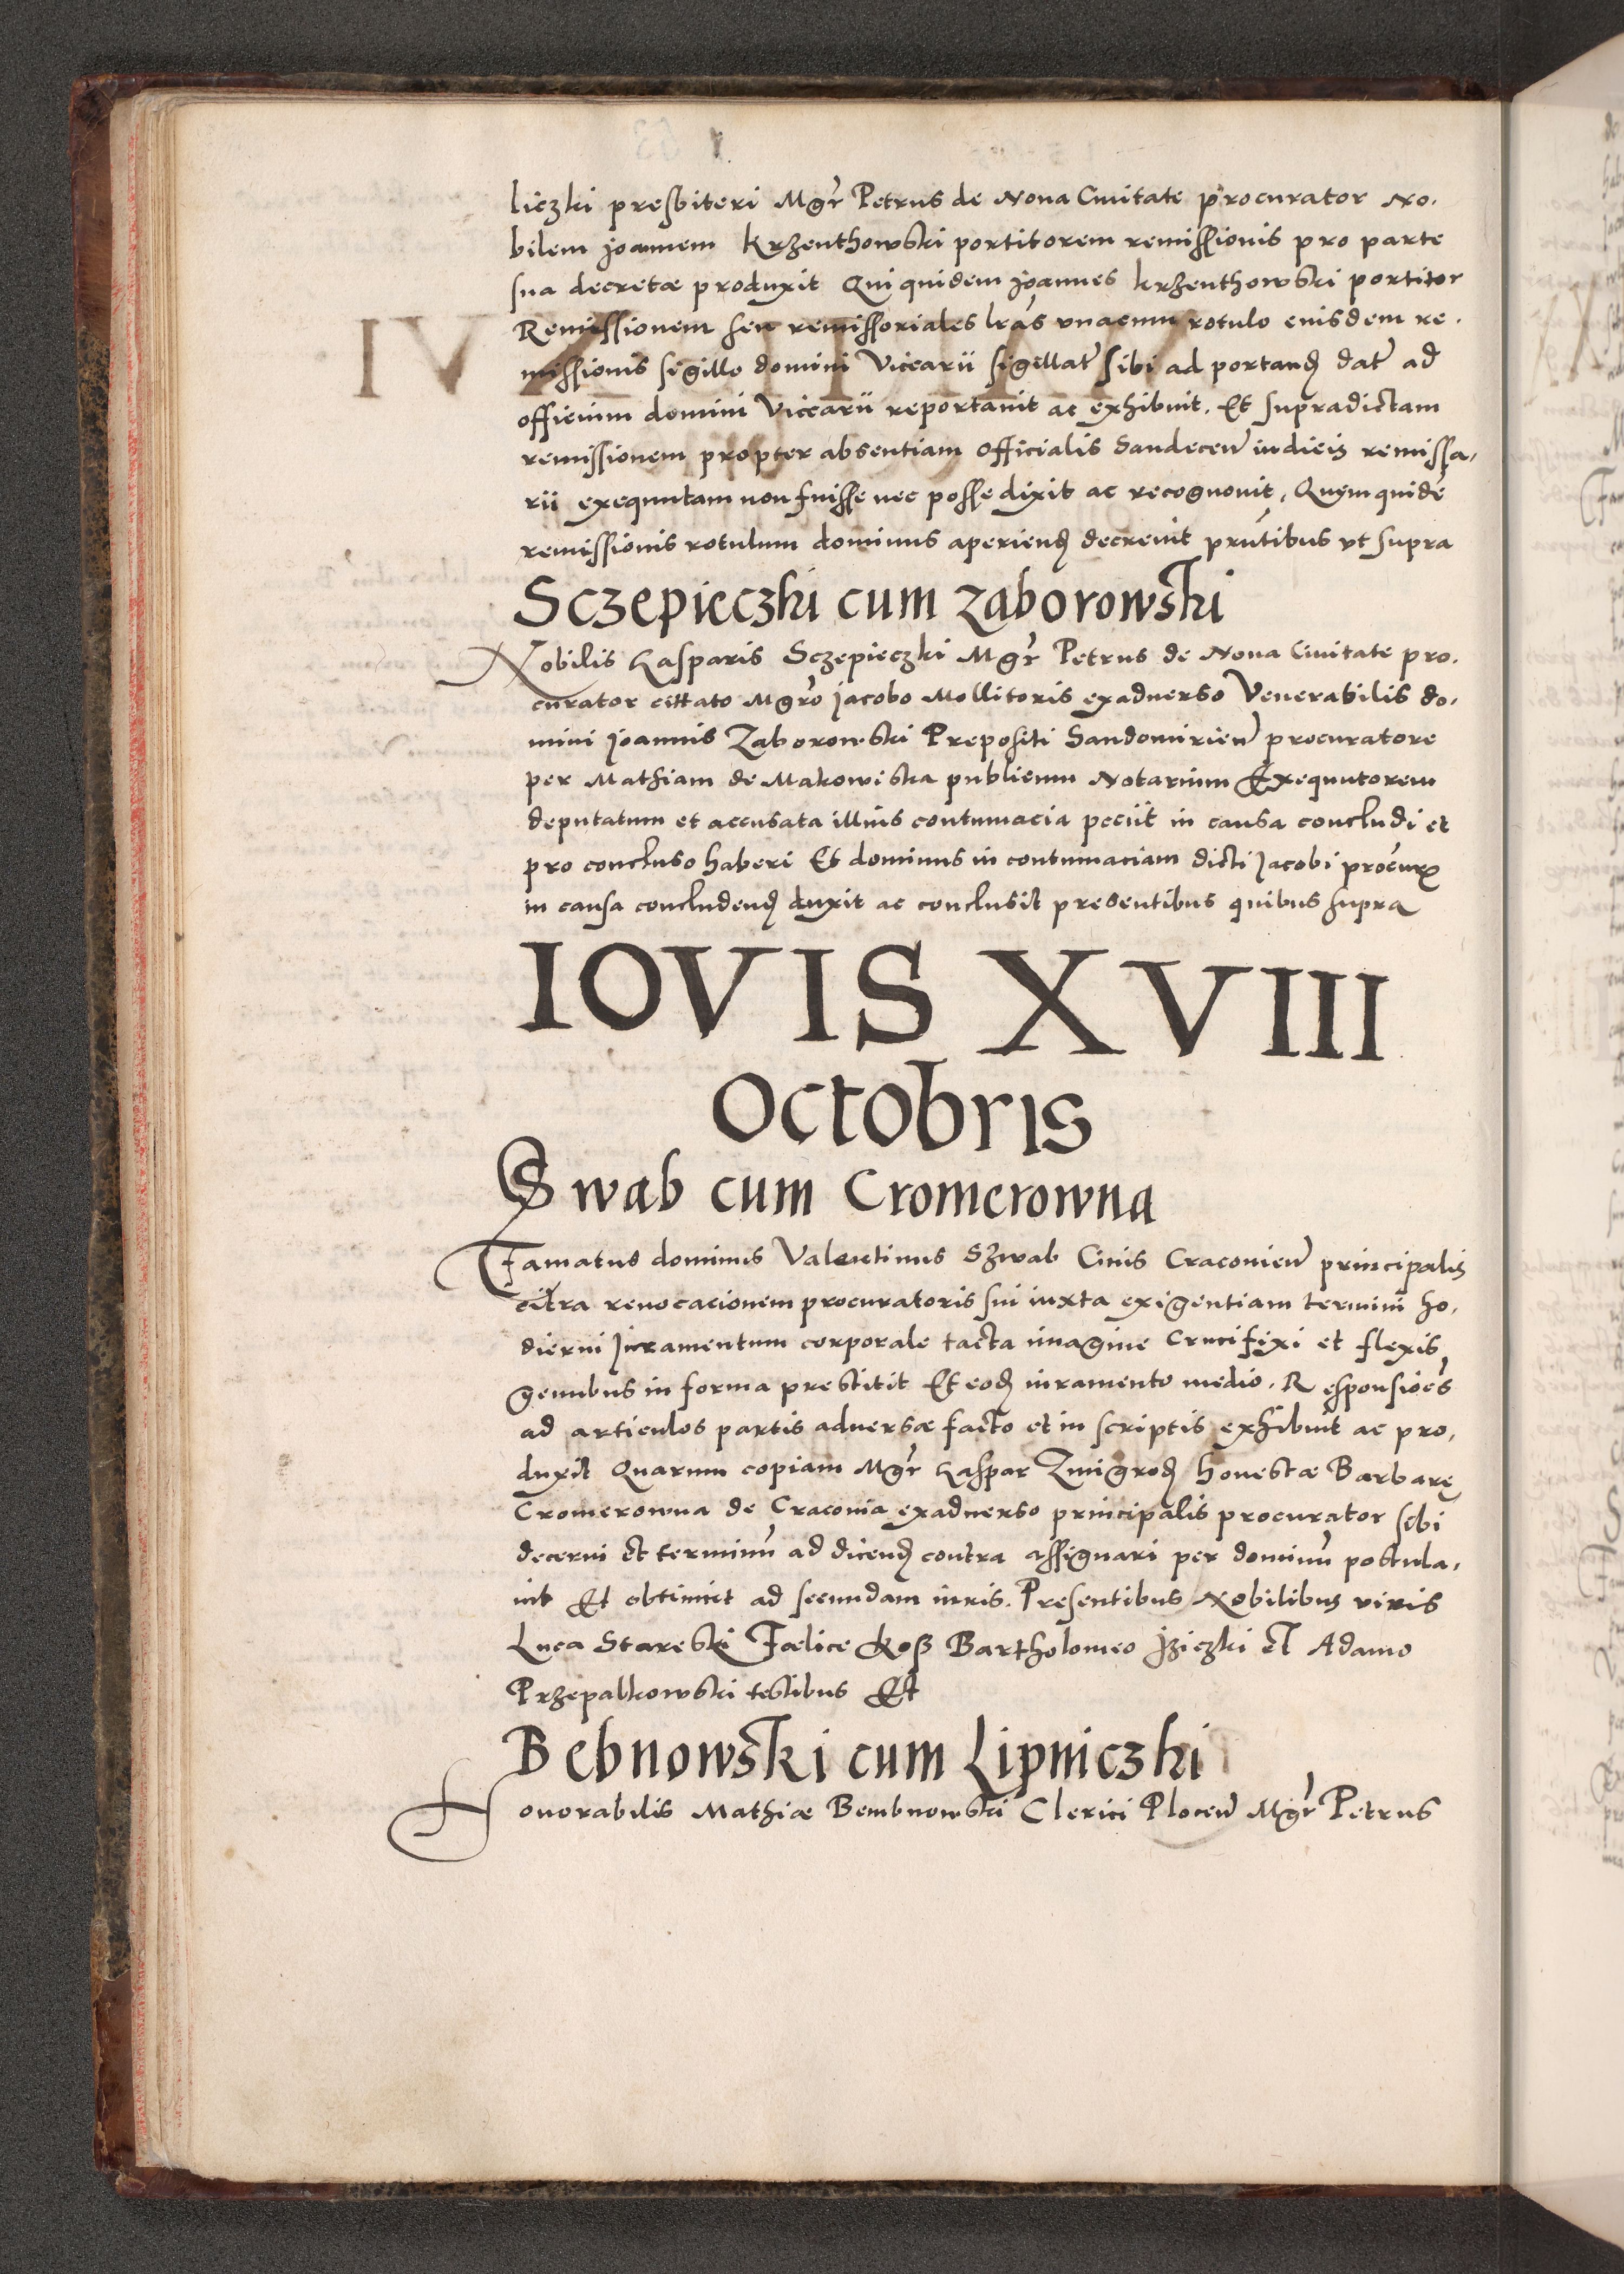 liczki presbiteri Mgr̃ Petrus de Nova Civitate procurator No.
bilem Joannem Krzenthowski portitorem remissionis pro parte
sua decretæ produxit Qui quidem Joannes Krzenthowski portitor
Remissionem seu remissoriales lrãs unacum rotulo eiusdem re.
missionis sigillo domini Vicarii sigillat sibi ad portand dat ad
officium domini Vicarii reportavit ac exhibuit. Et supradictam
remissionem propter absentiam Officialis Sandecen iudicis remissa,
rii exequutam non fuisse nec posse dixit ac recognovit, Quem quidẽ
remissionis rotulum dominus aperiend decrevit pntibus ut supra
Sczepieczki cum Zaborowski
Nobilis Casparis Sczepieczki Mgr̃ Petrus de Nova Civitate pro.
curator cittato Mgrõ Jacobo Mollitoris exadverso Venerabilis do.
mini Joannis Zaborowski Prepositi Sandomirien procuratore
per Mathiam de Makowiska publicum Notarium Exequutorem
deputatum et accusata illius contumacia peciit in causa concludi et
pro concluso haberi Et dominus in contumaciam dicti Jacobi procur
in causa concludend duxit ac conclusit presentibus quibus supra
IOVIS XVIII
Octobris
Swab cum Cromerowna
Famatus dominus Valentinus Szwab Civis Cracovien principalis
citra revocacionem procuratoris sui iuxta exigentiam termini ho,
dierni Juramentum corporale tacta imagine Crucifixi et flexis
genubus in forma prestitit Et eod iuramento medio. Responsiões
ad articulos partis adversæ facto et in scriptis exhibuit ac pro,
duxit Quarum copiam Mgr̃ Caspar Zmigrod honestæ Barbarę
Cromerowna de Cracovia exadverso principalis procurator sibi
decerni et terminũ ad dicend contra assignari per dominũ postula,
vit Et obtinuit ad secundam iuris. Presentibus Nobilibus viris
Luca Stareski Fælice Kosz Bartholomeo Jziczki et Adamo
Przepalkowski testibus Et
Bebnowski cum Lipniczki
Honorabilis Mathiæ Bembnowski Clerici Plocen Mgr̃ Petrus